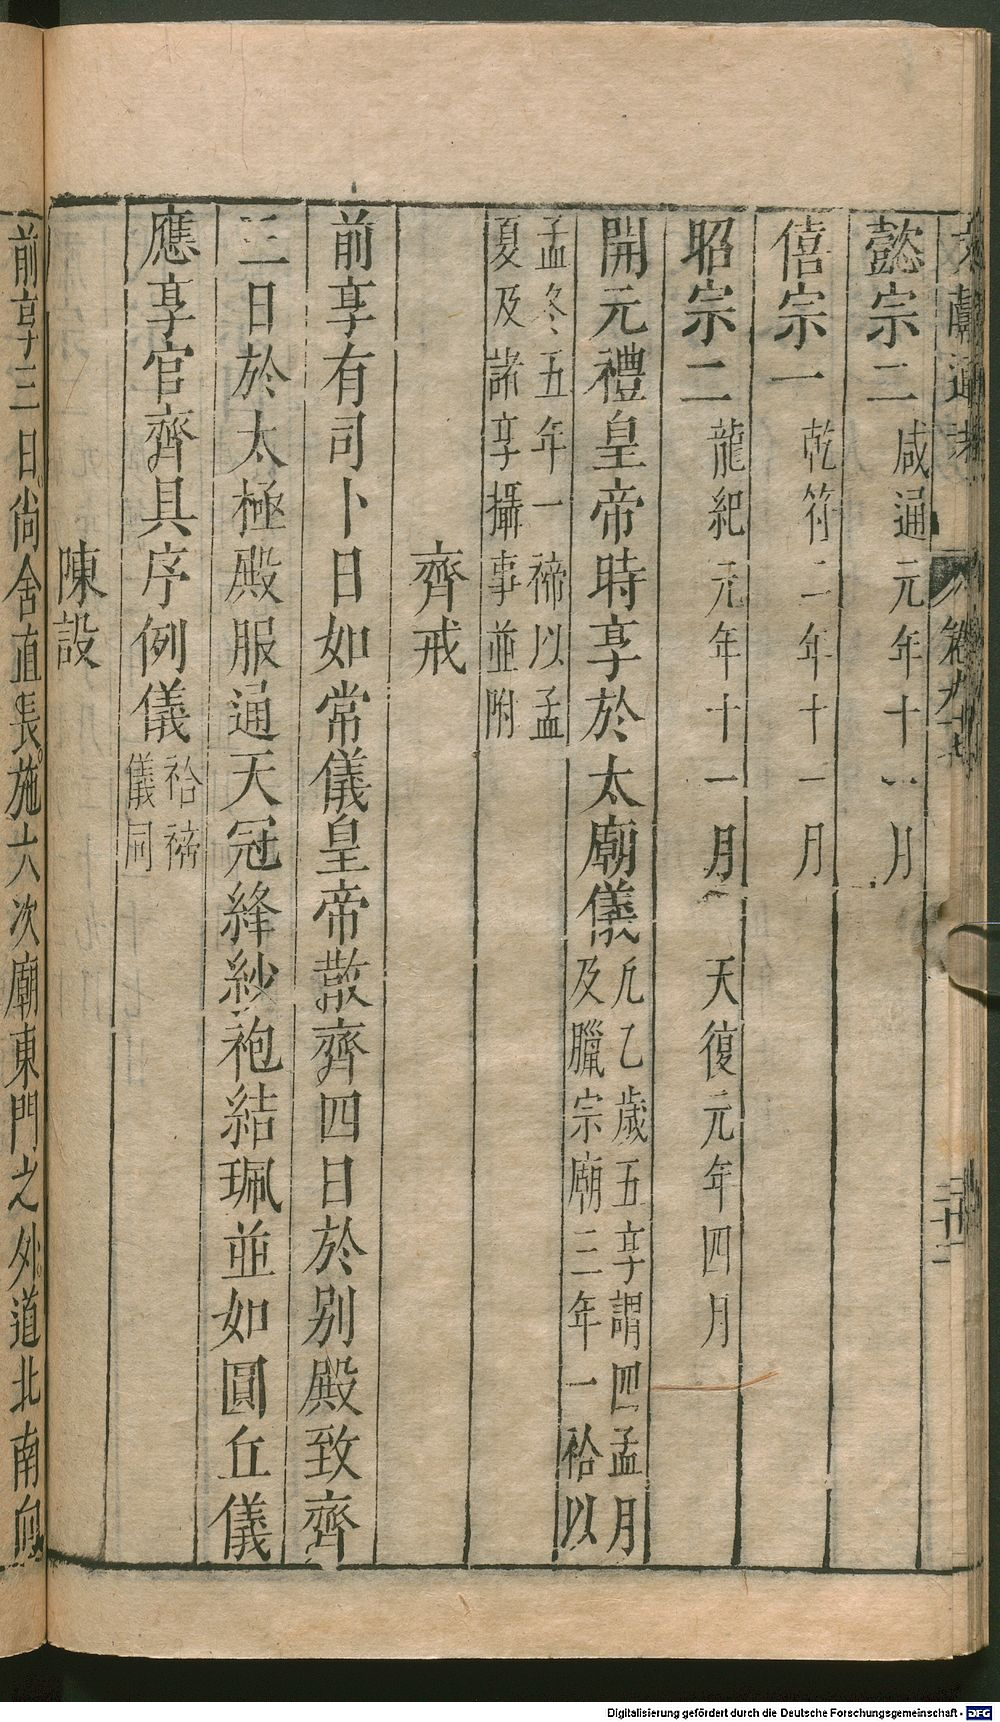 文獻通考 卷九十七 二十二
懿宗二 咸通元年十一月
僖宗一 乾符二年十一月
昭宗二 龍紀元年十一月 天復元年四月
開元禮皇帝時享於太廟儀 凡乙歲五享謂四孟月
及臘宗廟三年一祫以
孟冬五年一禘以孟
夏及諸享攝事並附
齊戒
前享有司卜日如常儀皇帝散齊四日於别殿致齊
三日於太極殿服通天冠絳紗袍結珮並如圓丘儀
應享官齊具序例儀 祫禘
儀同
陳設
前享三日尚舍直長施六次廟東門之外道北南向
Digitalisierung gefördert durch die Deutsche Forschungsgemeinschaft - DFG